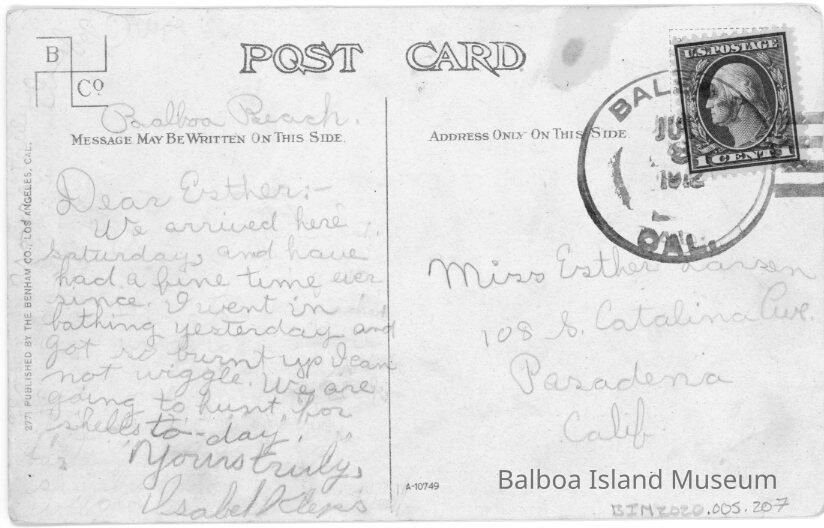 B
Cº
POST CARD
Balboa Beach.
MESSAGE MAY BE WRITTEN ON THIS SIDE.
ADDRESS ONLY ON THIS SIDE
Dear Esther:-
We arrived here
saturday, and have
had a fine time ever
since. I went in
bathing yesterday and
got so burnt up I can
not wiggle. We are
going to hunt for
shells to-day.
Yours truly,
Isabel
2771 PUBLISHED BY THE BENHAM CO., LOS ANGELES, CAL.
U.S. POSTAGE
1 CENT 1
BAL
CAL.
Miss Esther Larsen
108 S. Catalina Ave.
Pasadena
Calif
A-10749
Balboa Island Museum
BIM2020.005.207